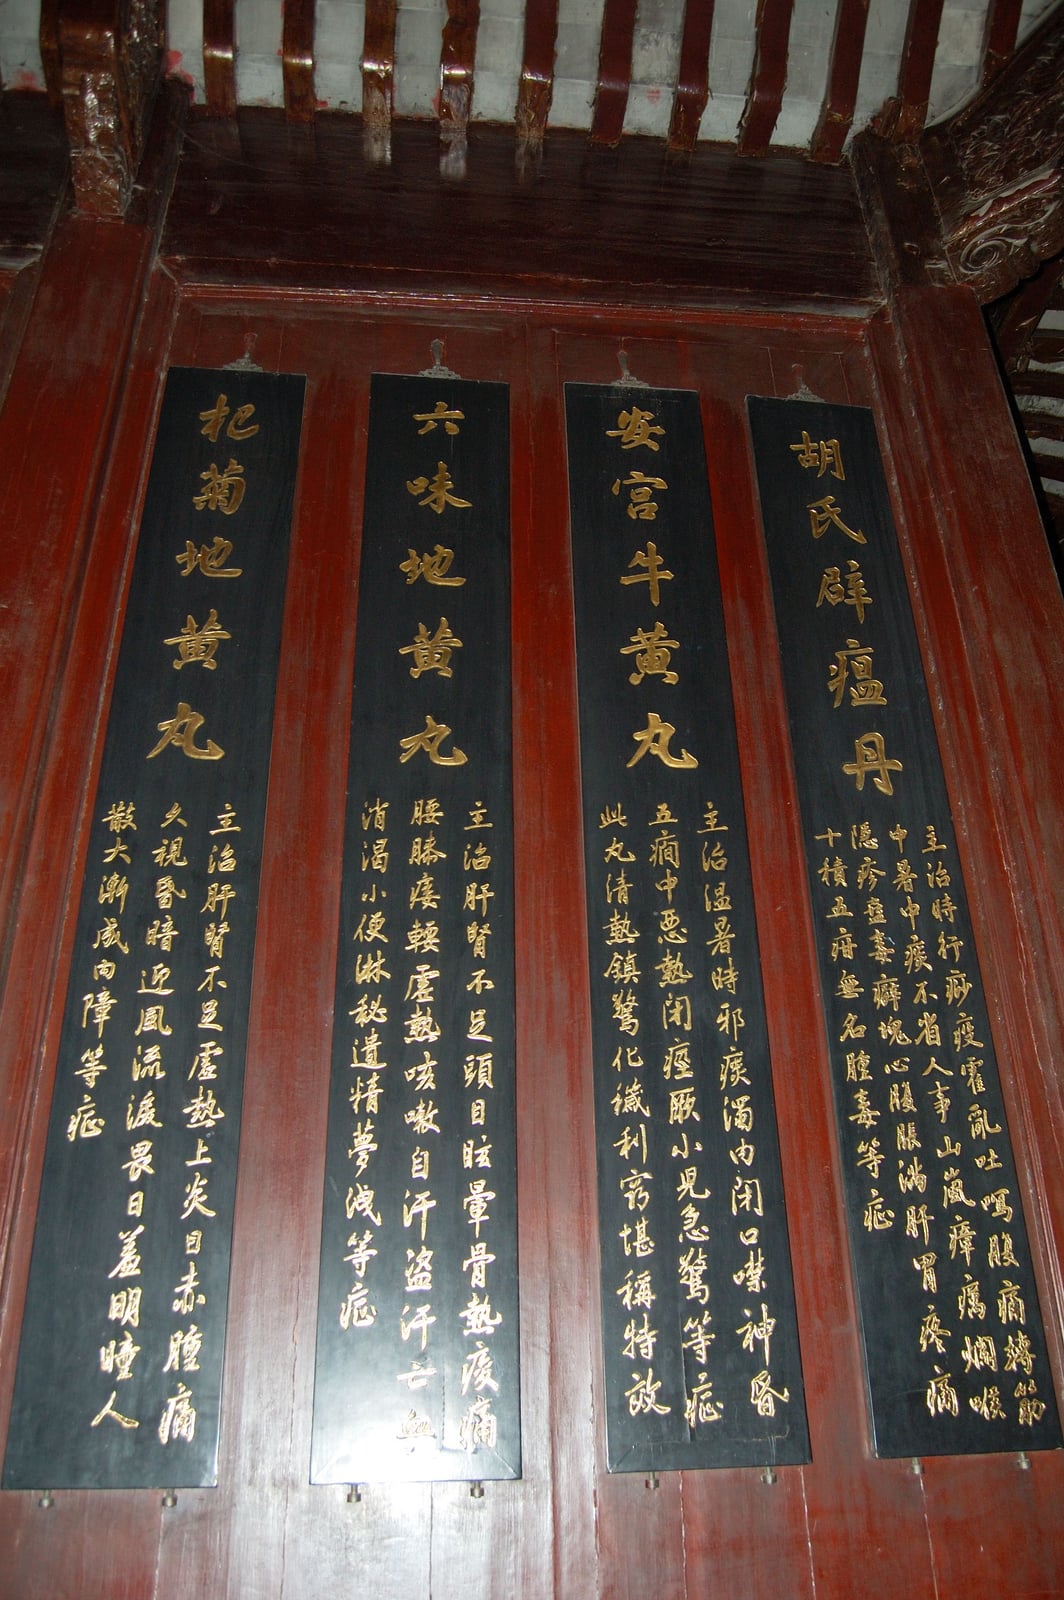 胡氏辟瘟丹
主治時行痧疫霍亂吐瀉腹痛轉筋
中暑中痰不省人事山嵐瘴癘爛喉
隱疹蠱毒癖塊心腹脹滿肝胃疼痛
十積五疳無名腫毒等症
安宮牛黄丸
主治温暑時邪痰濁内闭口噤神昏
五癎中恶熱闭痙厥小児急驚等症
此丸清熱鎮驚化穢利竅堪稱特效
六味地黄丸
主治肝腎不足頭目眩暈骨熱痠痛
腰膝痿輭虛熱咳嗽自汗盜汗亡血
消渴小便淋秘遺精夢洩等症
杞菊地黄丸
主治肝腎不足虛熱上炎目赤腫痛
久視昏暗迎風流淚畏日羞明瞳人
散大漸成内障等症